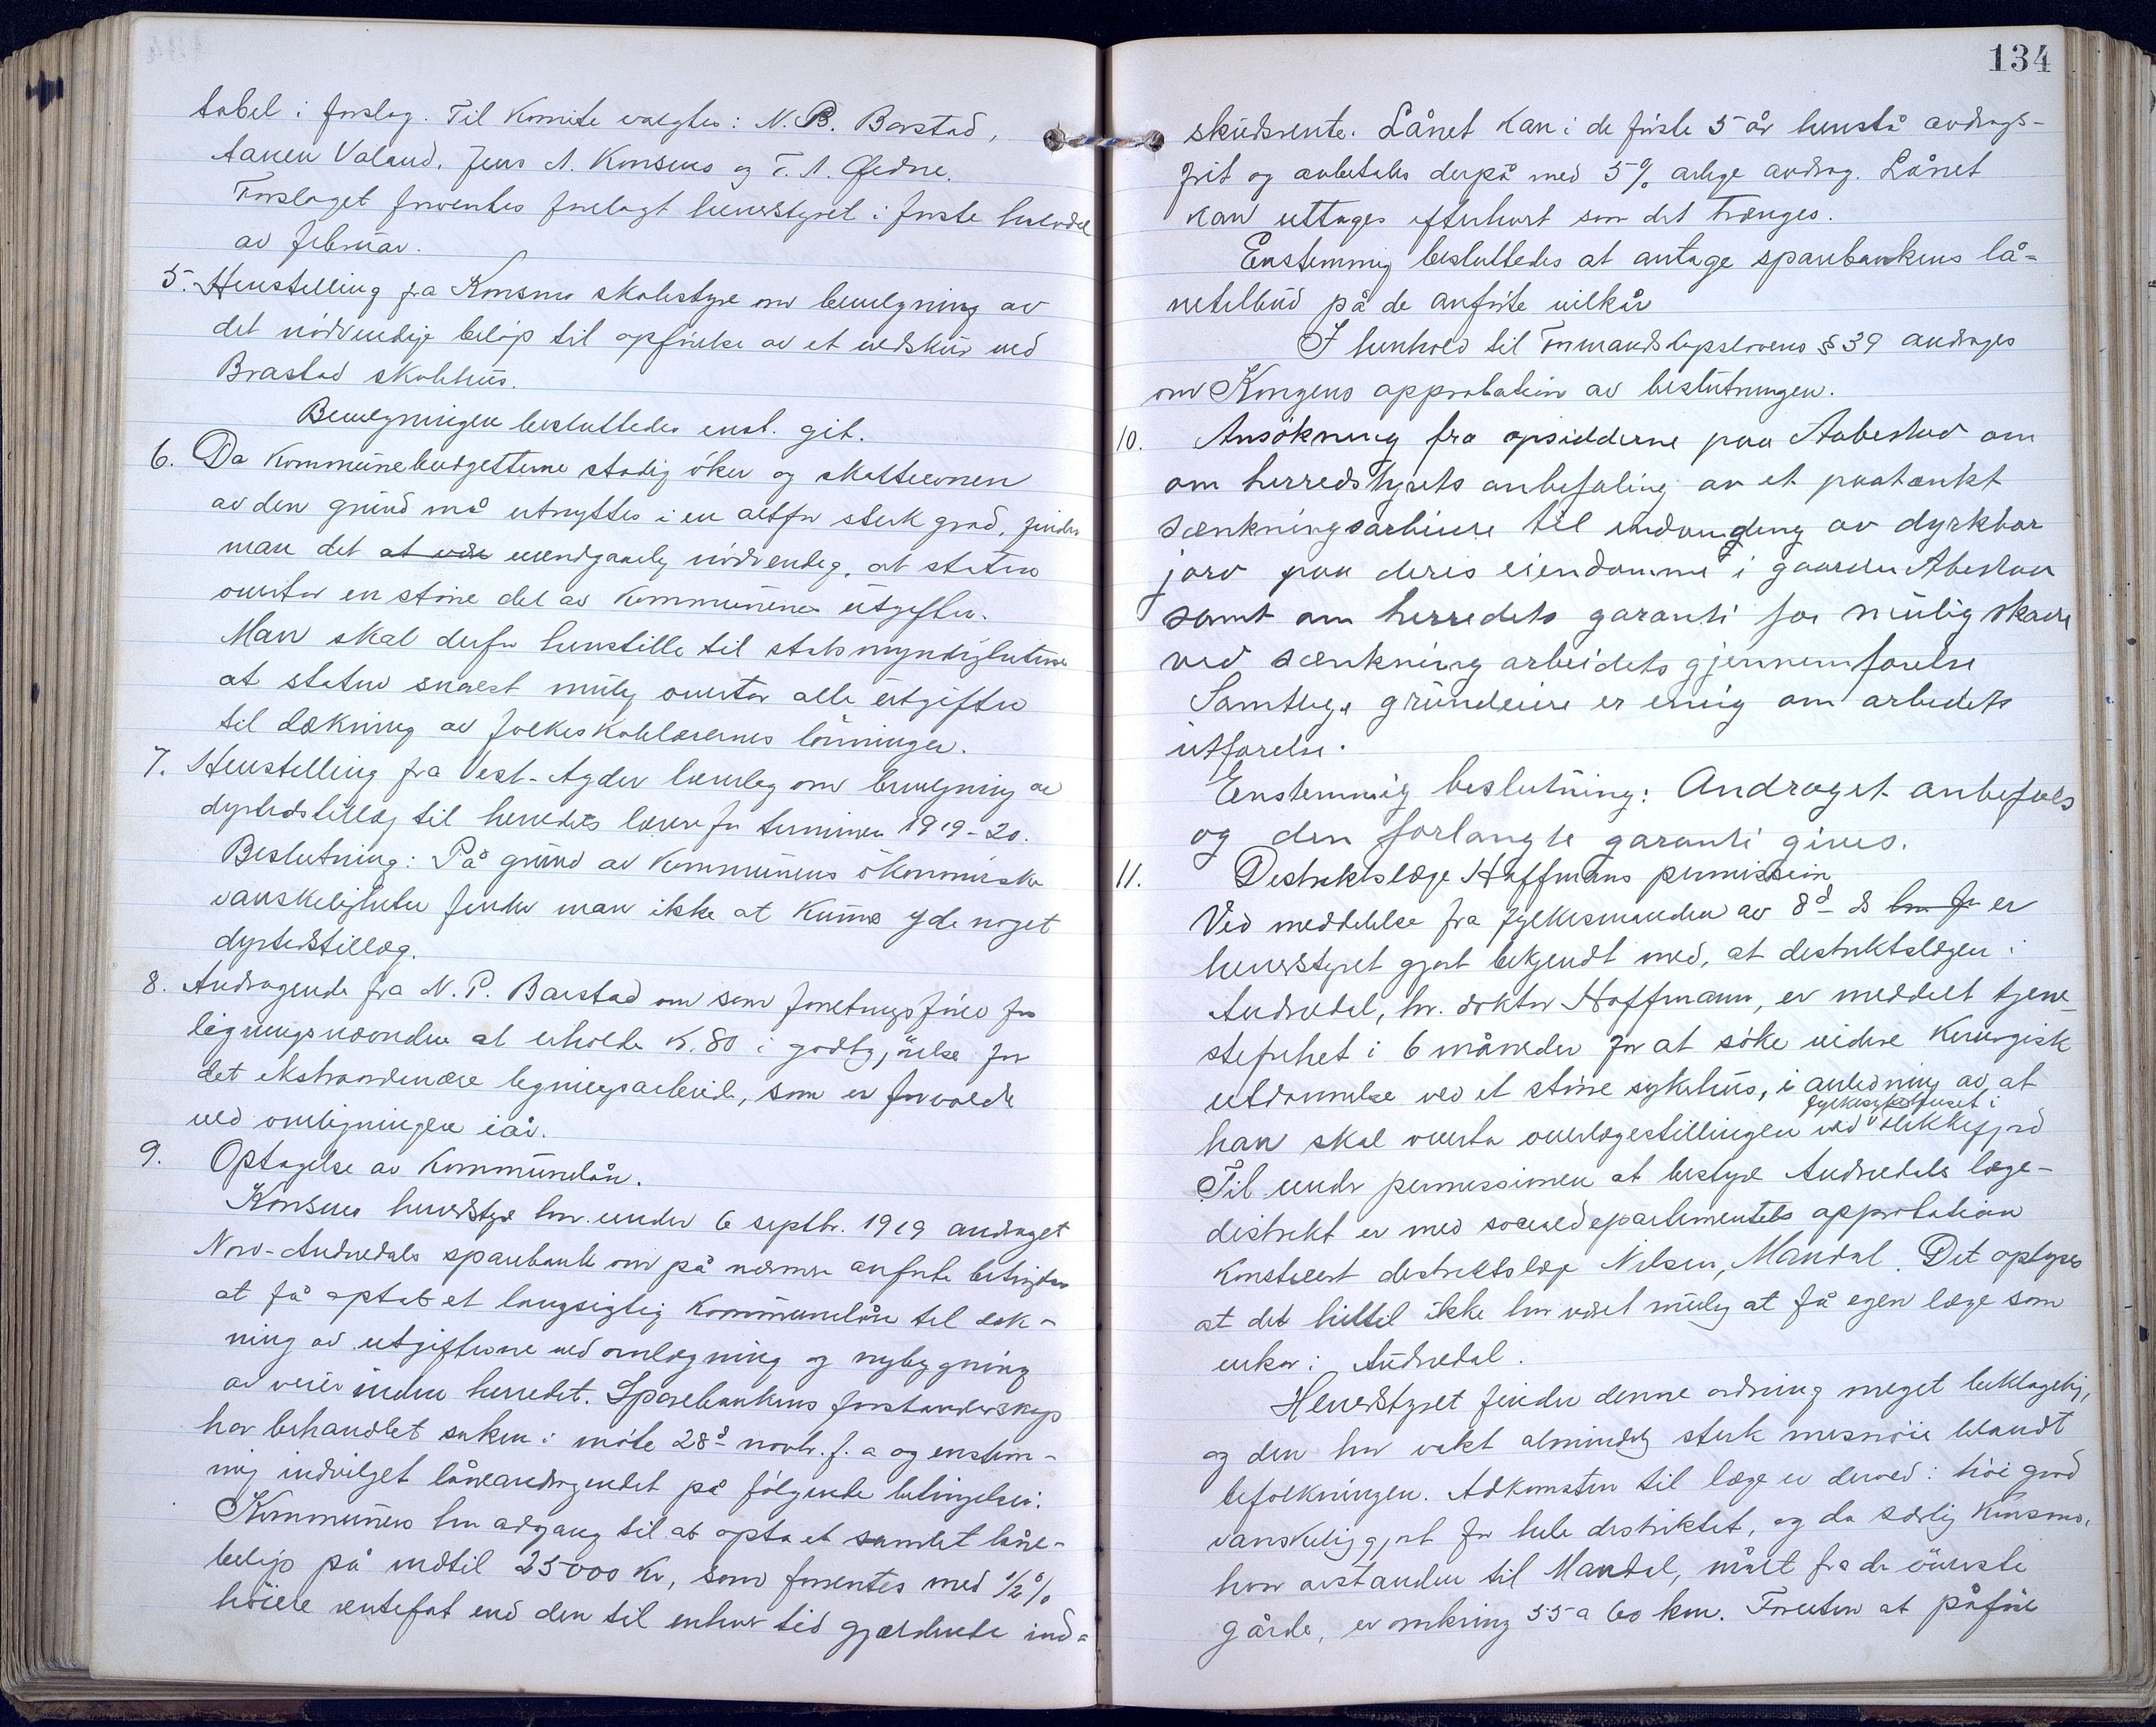 tabel i forslag. Til Komite valgtes: N. B. Barstad,
Aanen Valand. Jens A. Konsmo og T. A. Øidne.
Forslaget forventes forelagt herredstyret i første halvdel
av februar.
5. Henstilling fra Konsmo skolestyre om bevilgning av
det nödvendige belöp til opförelse av et vedskur ved
Brastad skolehus.
Bevilgningen besluttedes enst. git.
6. Da Kommunebudgetterne stadig öker og skatteevnen
av den grund må utnyttes i en altfor sterk grad, finder
man det at være uundgaaelig nödvendig, at staten
overtar en större del av Kommunenes utgifter.
Man skal derfor henstille til statsmyndigheterne
at staten snarest mulig overtar alle utgifter
til dækning av folkeskolelærernes lönninger.
7. Henstilling fra Vest-Agder lærerlag om bevilgning av
dyrtidstillæg til herredets lærere for terminen 1919-20.
Beslutning: På grund av Kommunens ökonomiske
vanskeligheter finder man ikke at kunne yde noget
dyrtidstillæg.
8. Andragende fra N. P. Barstad om som forretningsförer for
ligningsnævnden at erholde K. 80 i godtgjörelse for
det ekstraordinære ligningsarbeide, som er forvoldt
ved omligningen iår.
9. Optagelse av Kommunelån.
Konsmo herredstyre har under 6 septbr. 1919 andraget
Nord-Audnedals sparebank om på nærmere anförte betingelser
at få optat et langsigtig Kommunelån til dæk-
ning av utgifterne ved omlægning og nybygning
av veier inden herredet. Sparebankens forstanderskap
har behandlet saken i möte 28d novbr. f. a og enstem-
mig indvilget låneandragendet på fölgende betingelser:
Kommunen har adgang til at opta et samlet låne-
belöp på indtil 25000 Kr, som forrentes med ½ %
höiere rentefot end den til enhver tid gjældende ind-
134
skudsrente. Lånet kan i de förste 5 år henstå avdrags-
frit og avbetales derpå med 5 % årlige avdrag. Lånet
kan uttages efterhvert som det trænges.
Enstemmig besluttedes at antage sparebankens lå-
netilbud på de anförte vilkår
I henhold til Formandskapslovens § 39 andrages
om Kongens approbation av beslutningen.
10. Ansökning fra opsidderne paa Aabestad om
om herredstyrets anbefaling av et paatænkt
sænkningsarbeide til indvinding av dyrkbar
jord paa deres eiendomme i gaarden Abestad
samt om herredets garanti for mulig skade
ved sænkning arbeidets gjennemförelse
Samtlige grundeiere er enig om arbeidets
utförelse.
Eenstemmig beslutning: Andraget anbefales
og den forlangte garanti gives.
11. Distriktslæge Hoffmans permission
Ved meddelelse fra fylkesmanden av 8d ds har fr er
herredstyret gjort bekjendt med, at distriktslægen i
Audnedal, hr. doktor Hoffmann, er meddelt tjene-
stefrihet i 6 måneder for at söke videre kirurgisk
utdannelse ved et större sykehus, i anledning av, at
fylkessykehuset i
han skal overta overlægestillingen ved Flekkefjord
Til under permissionen at bestyre Audnedals læge-
distrikt er med socialdepartementets approbation
konstituert distriktslæge Nilsen, Mandal. Det oplyses
at det hittil ikke har været mulig at få egen læge som
vikar i Audnedal.
Herredstyret finder denne ordning meget beklagelig,
og den har vakt almindelig sterk misnöie blandt
befolkningen. Adkomsten til læge er derved i höi grad
vanskeliggjort for hele distriktet, og da særlig Konsmo,
hvor avstanden til Mandal, målt fra de överste
gårde, er omkring 55 a 60 km. Foruten at påföre